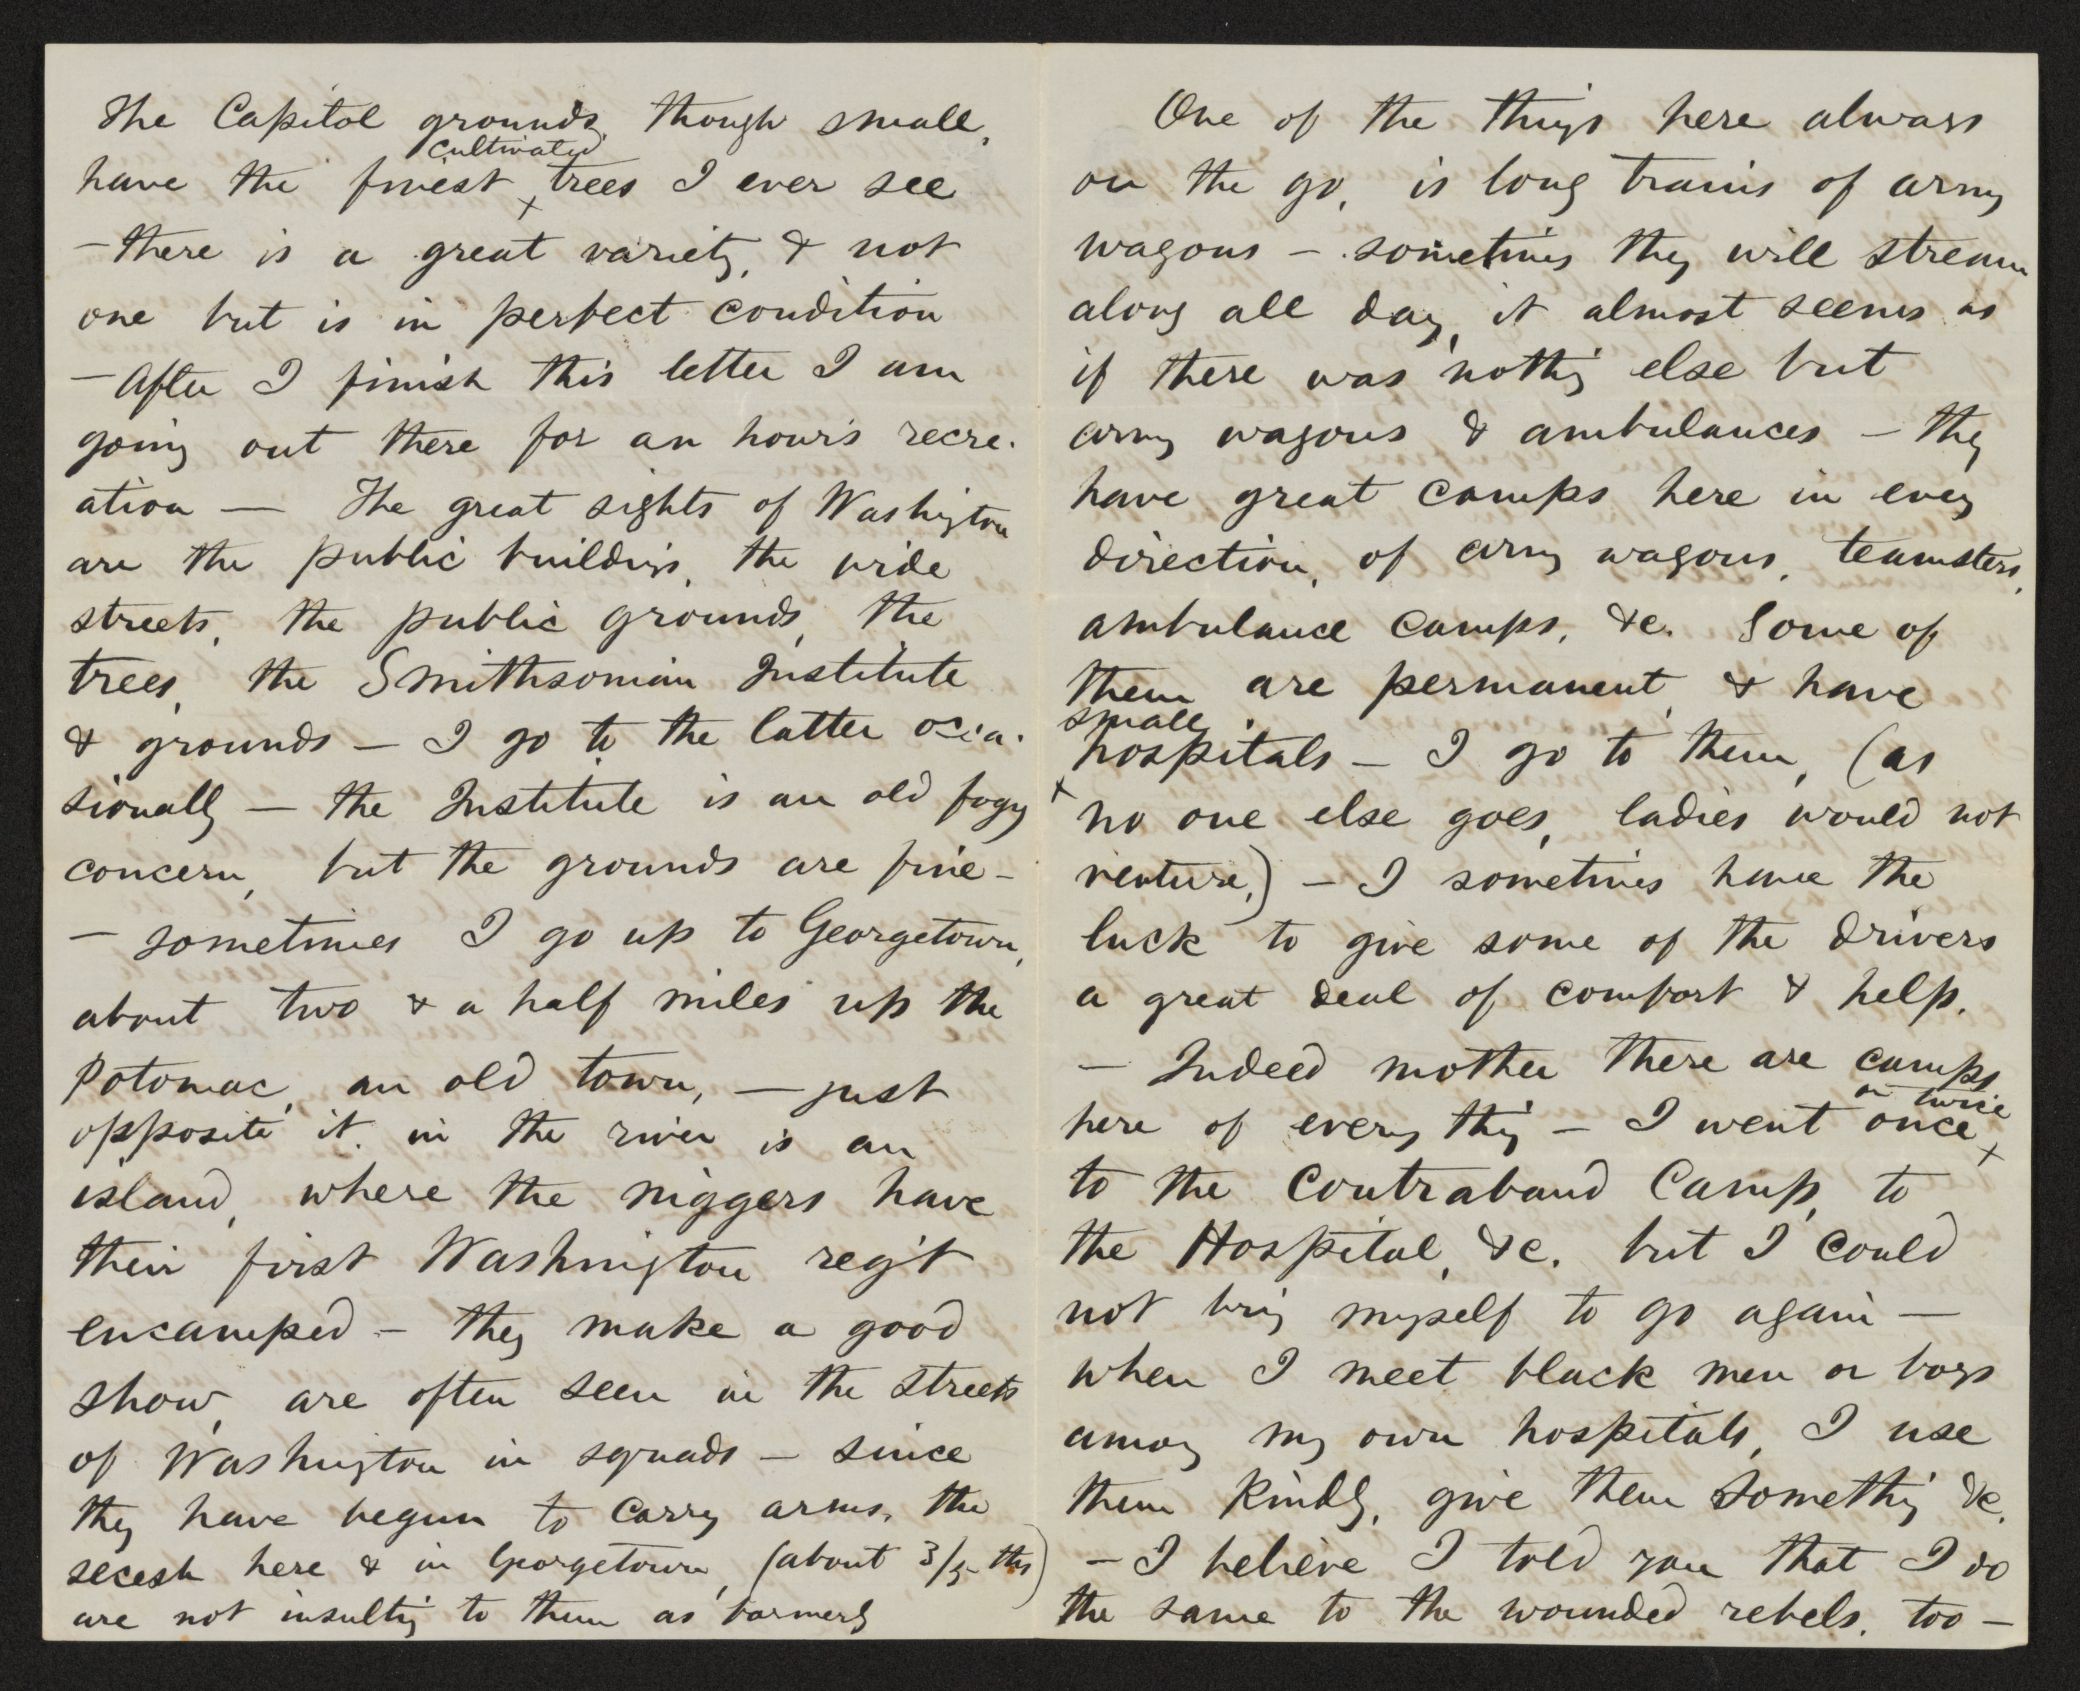 The Capitol grounds, though small,
cultivated
have the finest trees I ever see
— there is a great variety, & not
one but is in perfect condition
— After I finish this letter I am
going out there for an hour's recre-
ation — The great sights of Washington
are the public buildings, the wide
streets, the public grounds, the
trees, the Smithsonian Institute
& grounds — I go to the latter occa-
sionally — the Institute is an old fogy
concern, but the grounds are fine —
— sometimes I go up to Georgetown,
about two & a half miles up the
Potomac, an old town, — just
opposite it in the river is an
island, where the niggers have
their first Washington reg't
encamped — they make a good
show, are often seen in the streets
of Washington in squads — since
they have begun to carry arms, the
secesh here & in Georgetown, (about 3/5ths)
are not insulting to them as formerly
One of the things here always
on the go, is long trains of army
wagons — sometimes they will stream
along all day, it almost seems as
if there was nothing else but
army wagons & ambulances — they
have great camps here in every
direction, of army wagons, teamsters,
ambulance camps, &c. Some of
them are permanent, & have
small
hospitals — I go to them, (as
no one else goes, ladies would not
venture,) — I sometimes have the
luck to give some of the drivers
a great deal of comfort & help.
— Indeed mother there are camps
or twice
here of every thing — I went once
to the Contraband Camp, to
the Hospital, &c. but I could
not bring myself to go again —
when I meet black men or boys
among my own hospitals, I use
them kindly, give them something &c.
— I believe I told you that I do
the same to the wounded rebels, too —